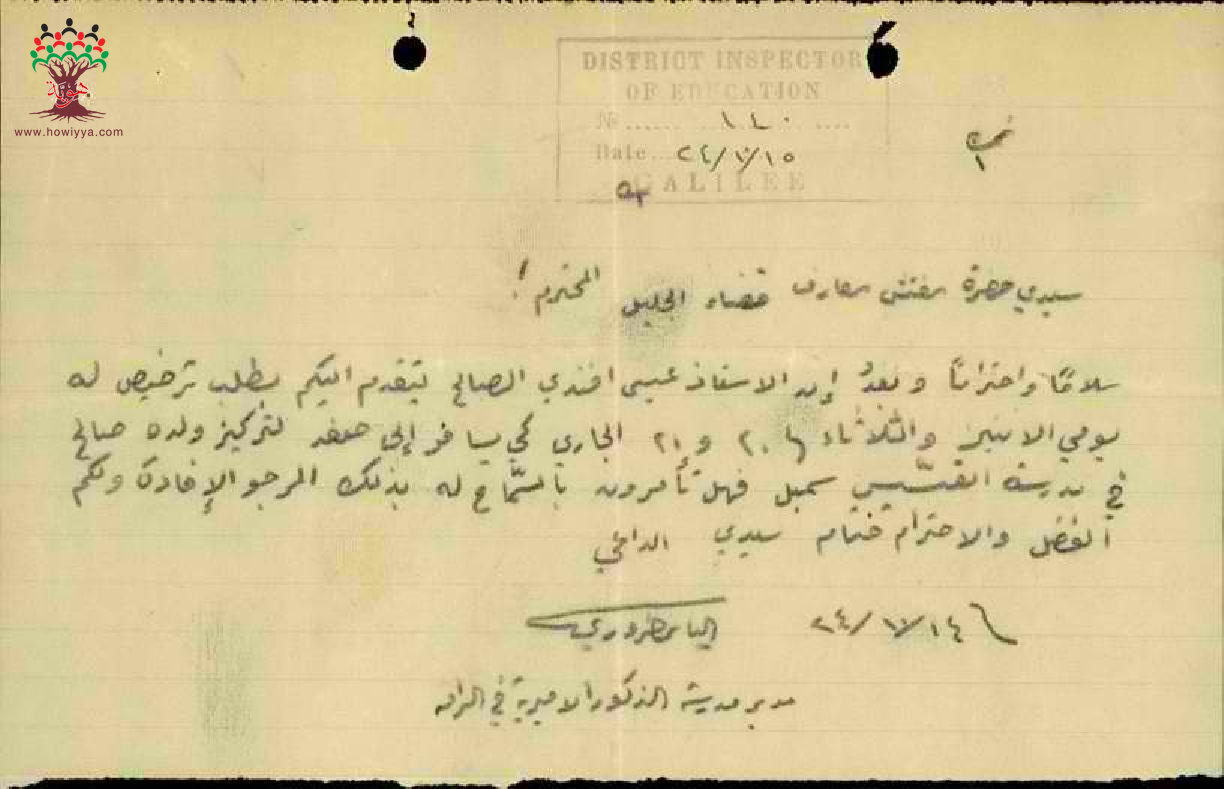 هوية
www.howiyya.com
DISTRICT INSPECTOR
OF EDUCATION
No ...... ١٤٠ ......
Date... ٢٤/٧/١٥
GALILEE
سيدي حضرة مفتش معارف قضاء الجليل المحترم!
سلامًا واحترامًا وبعدُ إن الاستاذ عيسى افندي الصالح يتقدم اليكم بطلب ترخيص له
يومي الاثنين والثلاثاء ٢٠ و ٢١ الجاري كي يسافر إلى صفد لتركيز ولده صالح
في مدرسة القسّيس سمبل فهل تأمرون بالسّماح له بذلك المرجو الإفادة ولكم
الفضل والاحترام ختام سيدي الداعي
٢٤/٧/١٤
الياس
مدير مدرسة الذكور الاميرية في الرامه